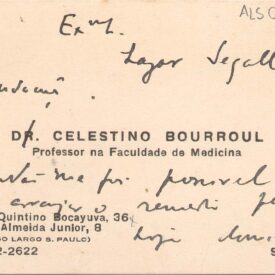 ALSC
Exmo.
Lazar Segall
DR. CELESTINO BOURROUL
Professor na Faculdade de Medicina
não me foi possivel
arranjar o remedio
Quintino Bocayuva, 36
Almeida Junior, 8
hoje
GO LARGO S. PAULO)
2-2622
S